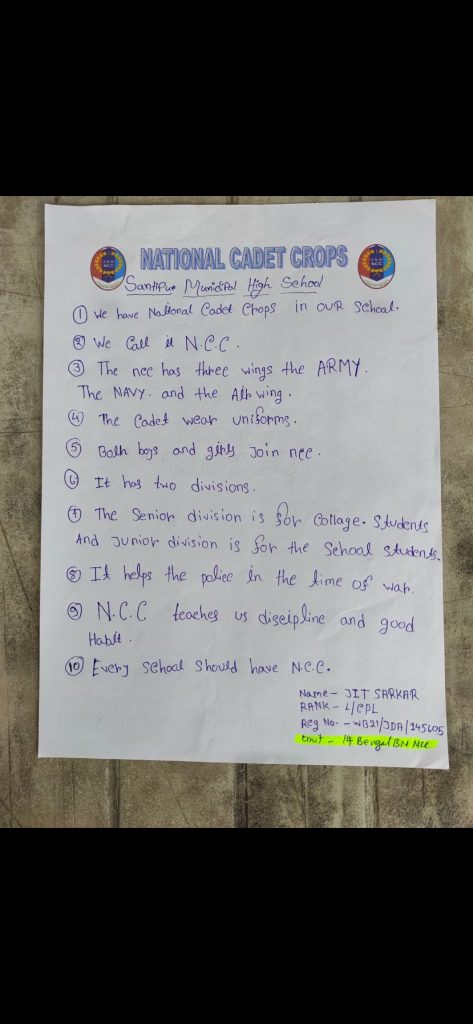 NATIONAL CADET CROPS
Santipur Municipal High School
① We have National Cadet Crops in OUR School.
② We Call it N.C.C.
③ The ncc has three wings the ARMY.
The NAVY. and the Air wing.
④ The Cadet wear uniforms.
⑤ Both boys and girls Join ncc.
⑥ It has two divisions.
⑦ The Senior division is for Collage. Students
And Junior division is for the School Students.
⑧ It helps the police in the time of war.
⑨ N.C.C teaches us discipline and good
Habit.
⑩ Every School Should have N.C.C.
Name - JIT SARKAR
RANK - L/CPL
Reg No. - WB21/JDA/145605
Unit - 14 Bengal BN NCC